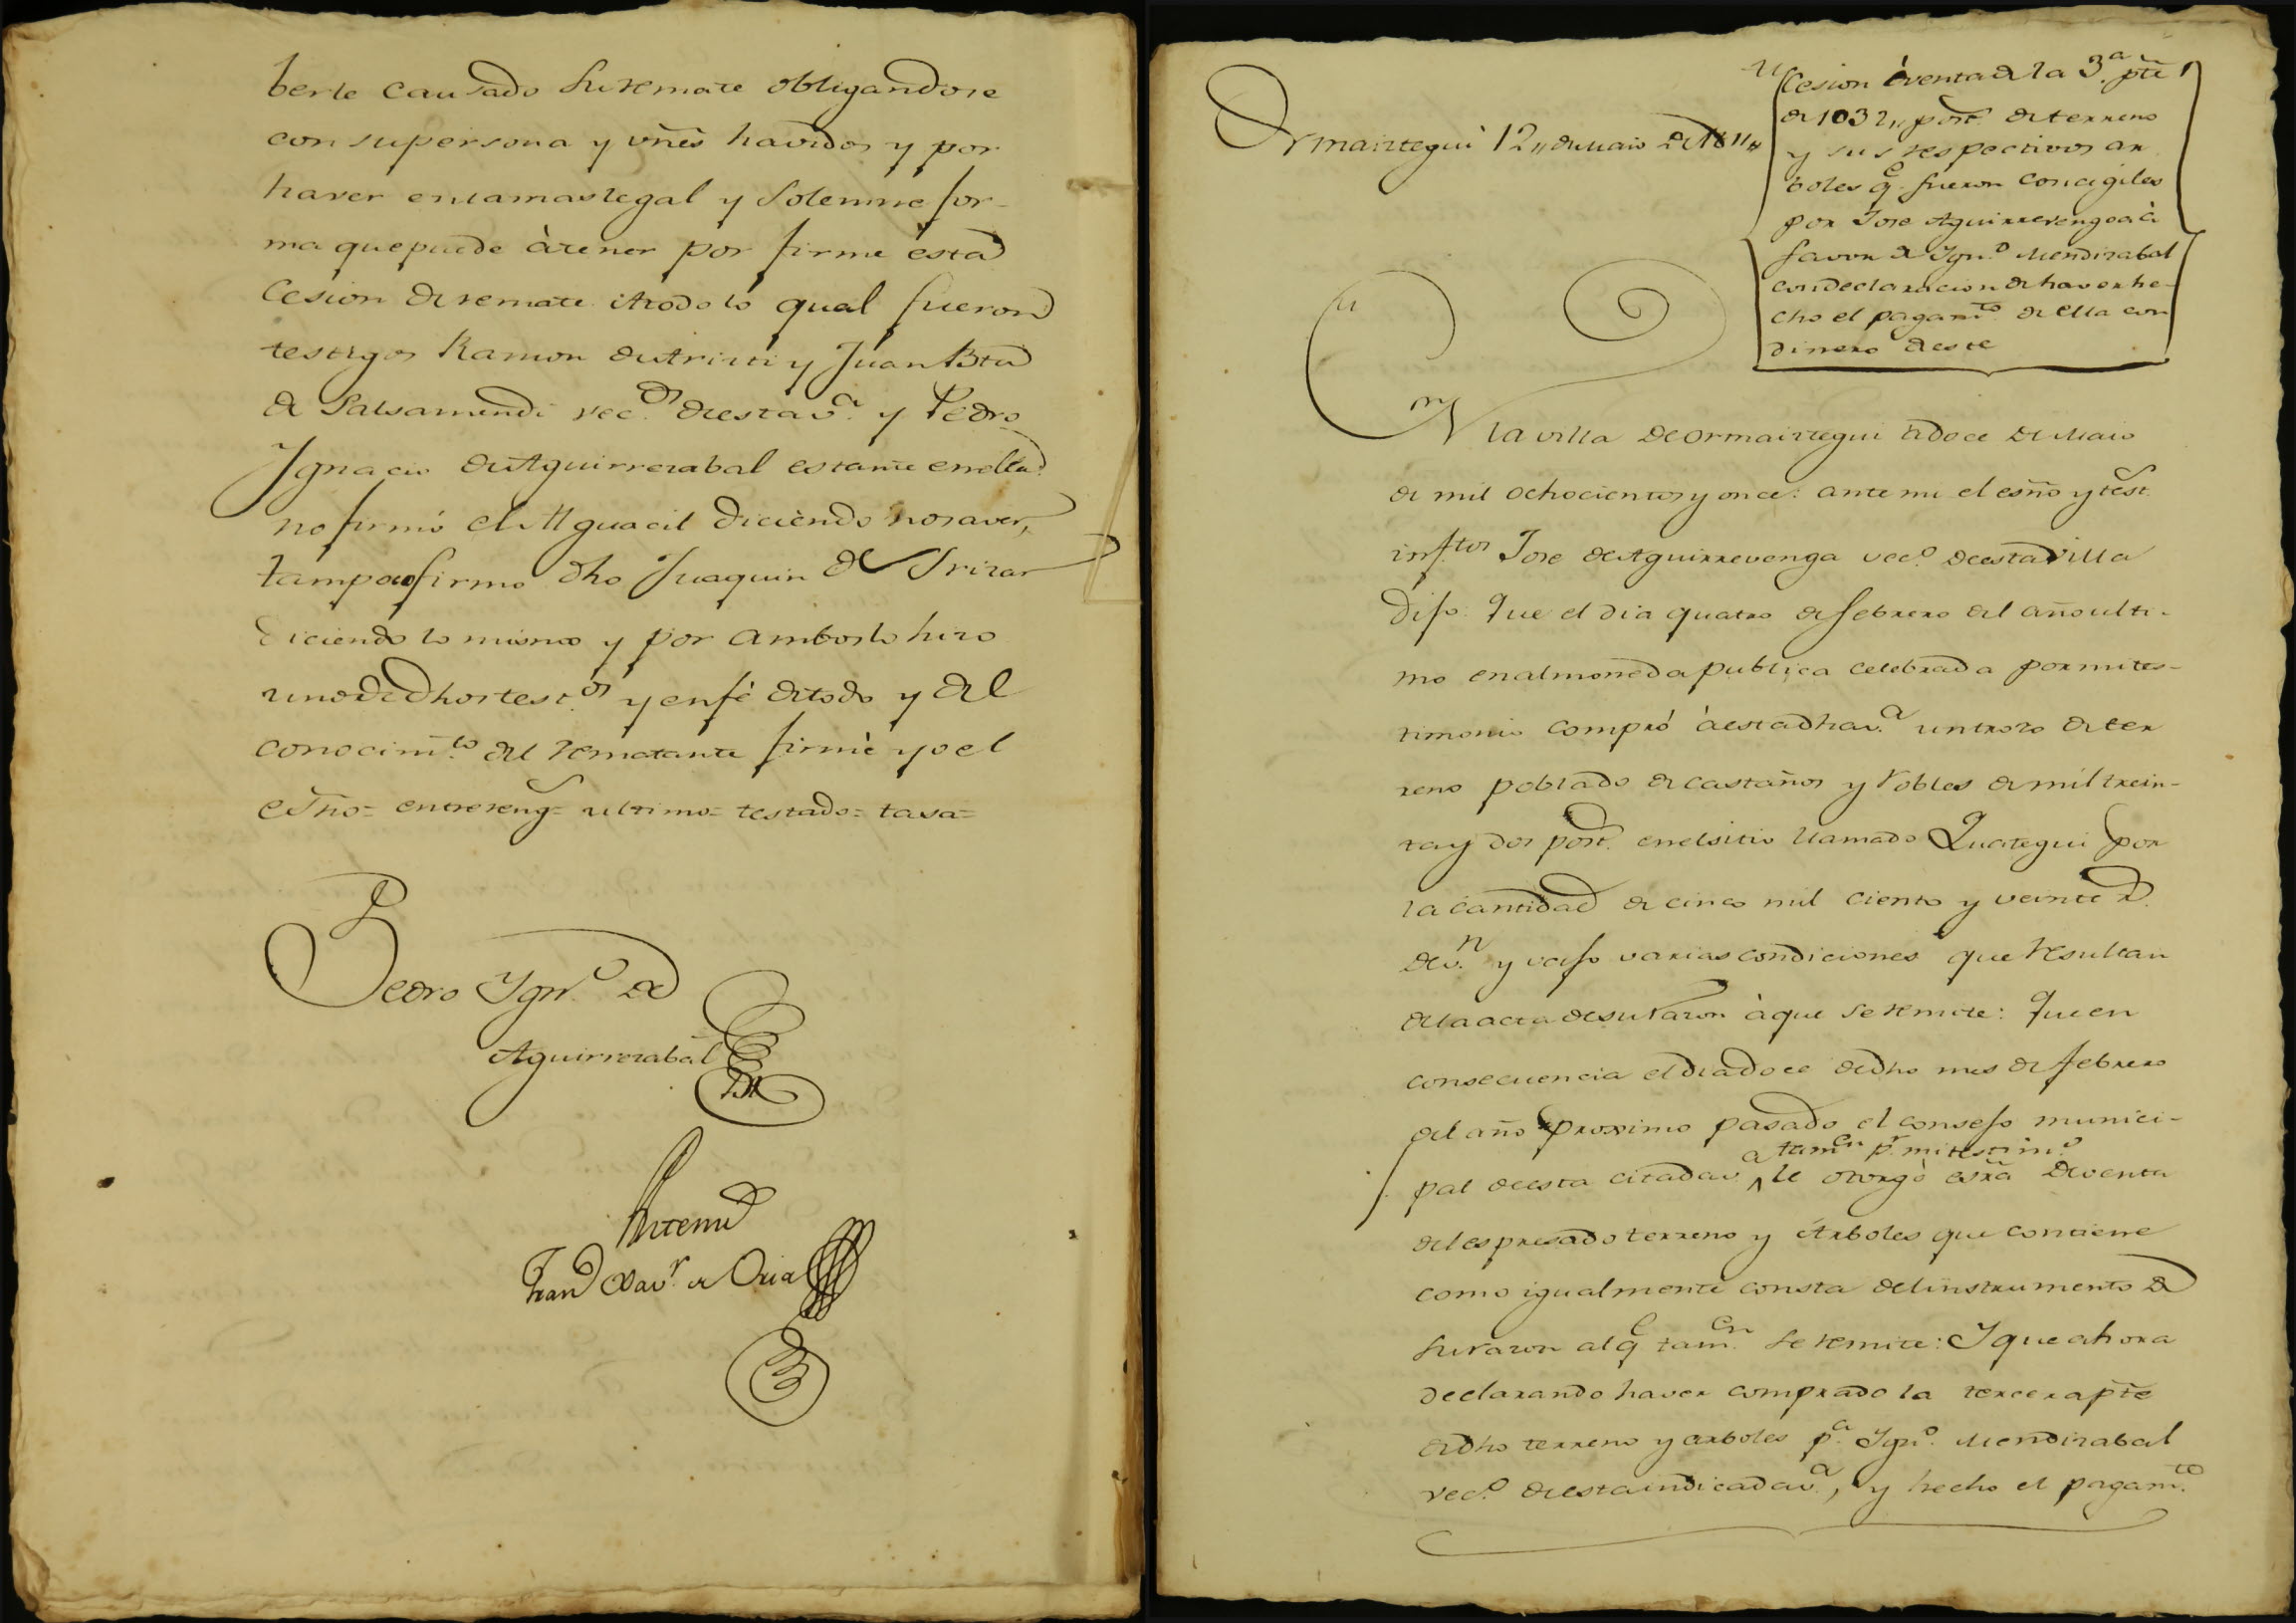 berle causado su remate obligandose
con su persona y vñes havidos y por
haver en la mas legal y solemne for-
ma que puede à tener por firme esta
Cesion de remate. A todo lo qual fueron
testigos Ramon de Aristi y Juan Bta
de Salsamendi vec.os de esta v.a y Pedro
Ygnacio de Aguirrezabal estante en ella
no firmó el Alguacil diciendo no saver,
tampoco firmo dho Juaquin de Irizar
diciendo lo mismo y por ambos lo hizo
uno de dhos test.os y en fé de todo y del
conocim.to del rematante firmè yo el
esño = entrereng.s = ultimo = testado = tasa =
Pedro Ygn.o de
Aguirrezabal
Antemi
Fran.co Xav.r de Oria
Ormaiztegui 12,, de Maio de 1811,,
Cesion ò venta de la 3.a pte
de 1032,, post.s de terreno
y sus respectivos ar
boles q.e fueron concegiles
por Jose Aguirrevengoa à
favor de Ygn.o Mendizabal
con declaracion de haver he-
cho el pagam.to de ella con
dinero de este
EN la villa de Ormaiztegui à doce de Maio
de mil ochocientos y once: ante mi el esño y test.s
infr.tos Jose de Aguirrevenga vec.o de esta villa
Dijo: Que el dia quatro de febrero del año ulti-
mo en almoneda publica celebrada por mi tes-
timonio compró à esta dha v.a un trozo de ter
reno poblado de castaños y robles de mil trein-
ta y dos post.s en el sitio llamado Luategui por
la cantidad de cinco mil ciento y veinte r.s
de v.n y vajo varias condiciones que resultan
de la acta de su razon à que se remite: Que en
consecuencia el dia doce de dho mes de febrero
del año proximo pasado el consejo munici-
a tam.en p.r mi testim.o
pal de esta citada v.a le otorgò esra de venta
del espresado terreno y Arboles que contiene
como igualmente consta del instrumento de
su razon al q.e tam.en se remite: Y que ahora
declarando haver comprado la tercera pte
de dho terreno y arboles p.a Ygn.o Mendizabal
vec.o de esta indicada v.a, y hecho el pagam.to